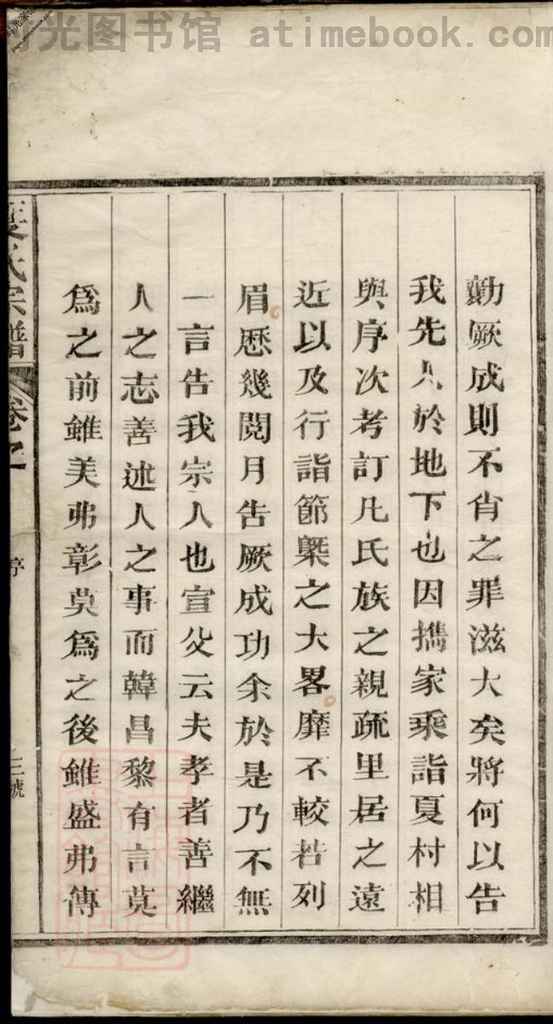 时光图书馆 atimebook.com
勷厥成則不肖之罪滋大矣將何以告
我先人於地下也因攜家乘詣夏村相
與序次考訂凡氏族之親疏里居之遠
近以及行詣節槩之大畧靡不較若列
眉歷幾閱月告厥成功余於是乃不無
一言告我宗人也宣父云夫孝者善繼
人之志善述人之事而韓昌黎有言莫
爲之前雖美弗彰莫爲之後雖盛弗傳
氏宗譜 卷之 序 三號